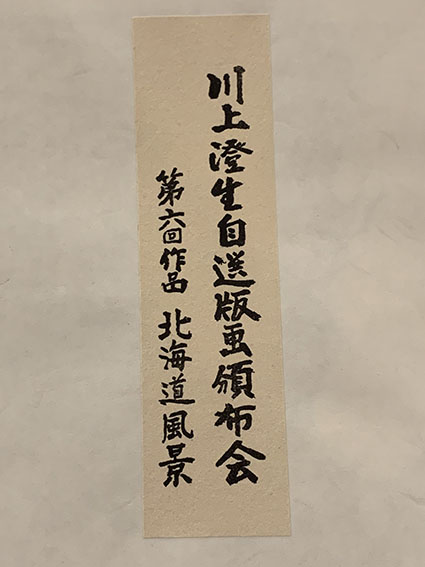 川上澄生自選版画頒布会
第六回作品 北海道風景